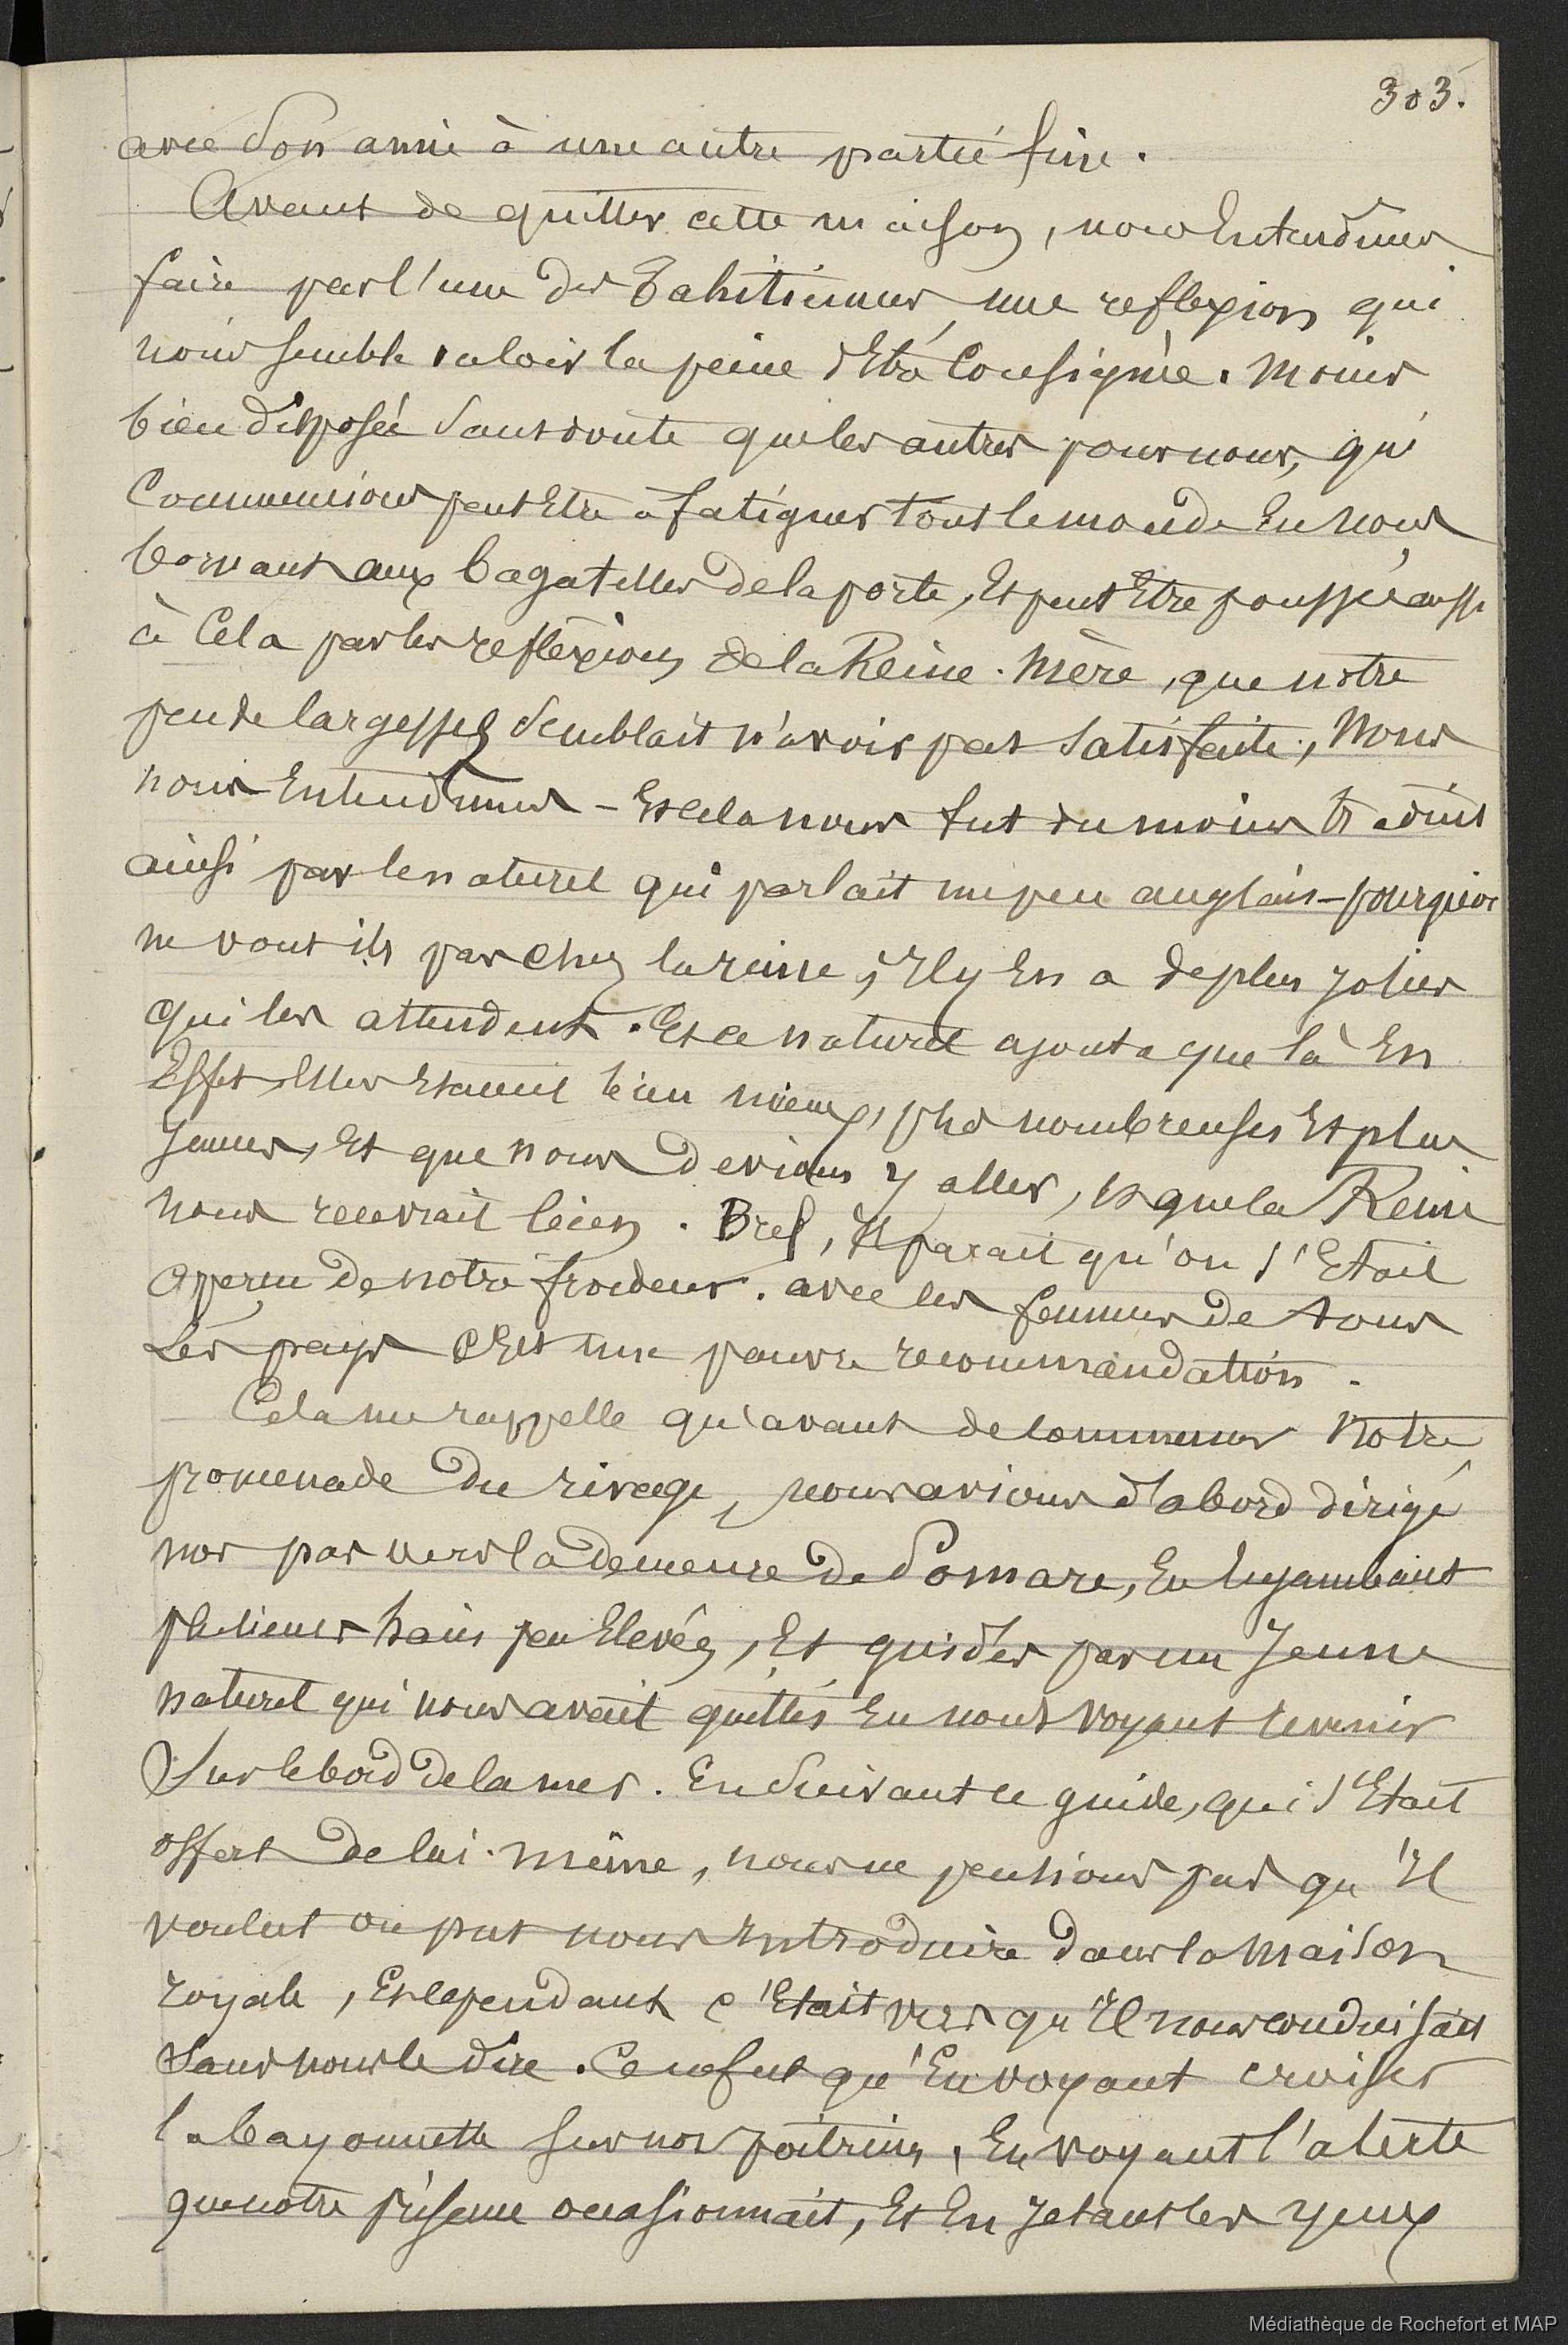 303.
avec son amie à une autre partie fine.
Avant de quitter cette maison, nous Entendimes
faire par l'une des Tahitiennes, une reflexion qui
nous semble valoir la peine d'Etre Consignée. Moins
bien disposée sans doute que les autres pour nous, qui
Commencions peut Etre à fatiguer tout le monde En nous
bornant aux bagatelles de la porte, Et peut Etre poussée aussi
à Cela par les reflexions de la Reine-Mère, que notre
peu de largesses semblait n'avoir pas satisfaite, Nous
nous Entendimes - Et cela nous fut du moins traduit
ainsi par le naturel qui parlait un peu anglais - pourquoi
ne vont ils pas chez la reine, Il y En a de plus jolies
qui les attendent. Et ce naturel ajouta que là En
Effet, Elles Etaient bien mieux, plus nombreuses Et plus
jeunes, Et que nous devions y aller, Et que la Reine
nous recevrait bien. Bref, Il parait qu'on s'Etait
aperçu de notre froideur. avec les femmes de tous
Les pays C'Est une pauvre recommandation.
Cela me rappelle qu'avant de commencer Notre
promenade du rivage, nous avions d'abord dirigé
nos pas vers la demeure de Pomare, En Enjambant
plusieurs haies peu Elevées, Et guidés par un Jeune
naturel qui nous avait quittés En nous voyant revenir
Sur le bord de la mer. En suivant ce guide, qui s'Etait
offert de lui-même, nous ne pensions pas qu'Il
voulut ou put nous Introduire dans la Maison
royale, Et cependant c'Etait vers qu'Il nous conduisait
Sans nous le dire. Ce ne fut qu'En voyant croiser
la bayonnette sur nos poitrines, En voyant l'alerte
que notre présence occasionnait, Et En jetant les yeux
Médiathèque de Rochefort et MAP